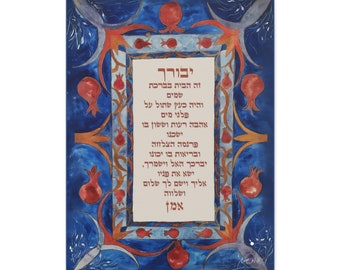 יבורך
זה הבית בברכת
שמים
והיה כעץ שתול על
פלגי מים
אהבה רעות וששון בו
ישכנו
פרנסה הצלחה
ובריאות בו יכונו
יברכך האל וישמרך,
ישא את פניו
אליך וישם לך שלום
ושלווה
אמן